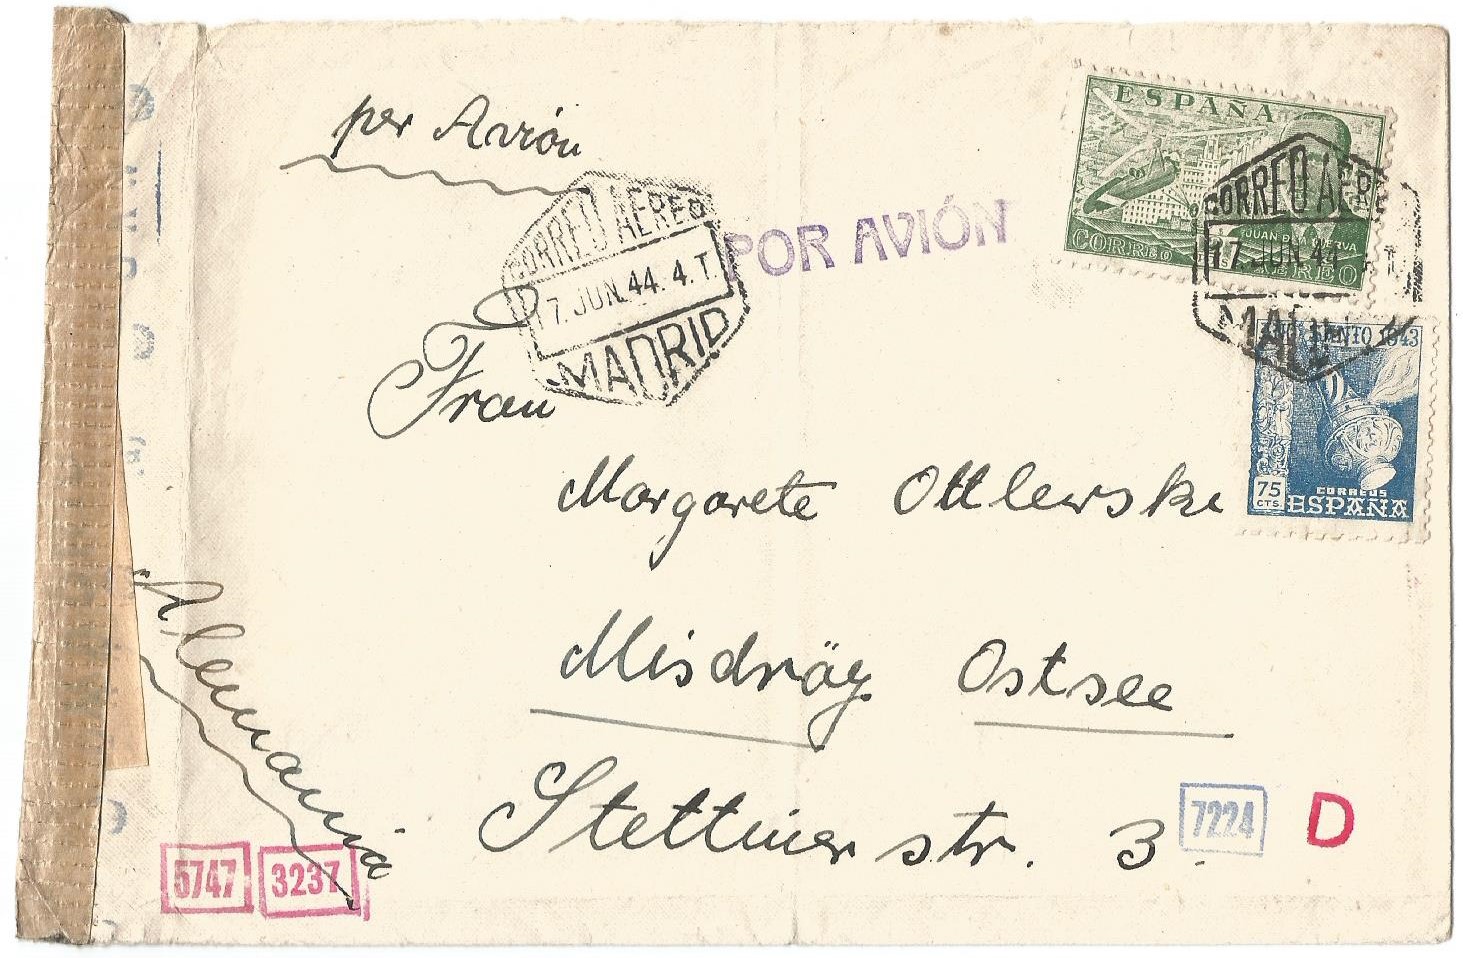 per Avión
ESPAÑA
JUAN DE LA CIERVA
CORREO AEREO
CORREO AEREO
17. JUN. 44. 4. T.
MADRID
POR AVIÓN
CORREO AERE
17. JUN. 44
MADRID
AÑO SANTO 1943
75
CTS
CORREOS
ESPAÑA
Frau
Margarete Ottlewski
Misdroy Ostsee
Stettiner str. 3.
Alemania
5747
3237
7224
D